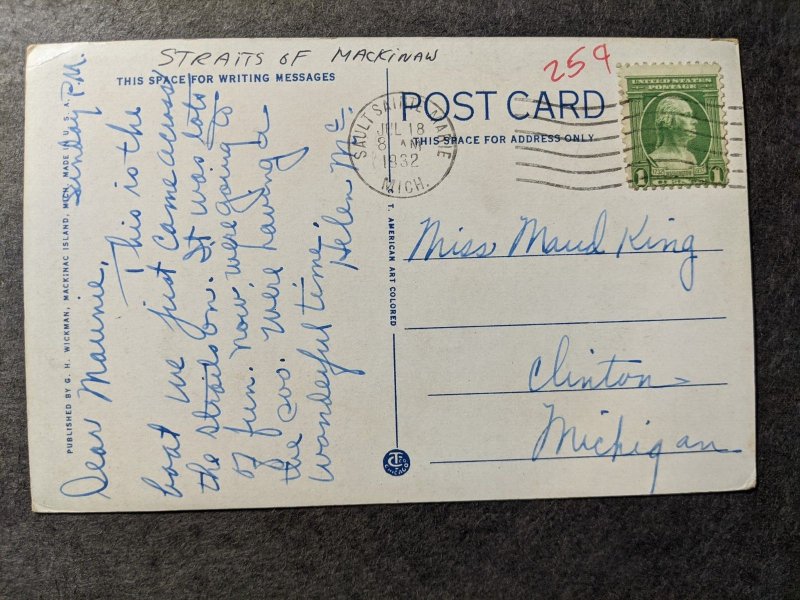 STRAITS OF MACKINAW
259
THIS SPACE FOR WRITING MESSAGES
POST CARD
THIS SPACE FOR ADDRESS ONLY
SAULT SAINTE MARIE
JUL 18
8 AM
1932
MICH.
UNITED STATES
POSTAGE
1
PUBLISHED BY G. H. WICKMAN, MACKINAC ISLAND, MICH. MADE IN U. S. A.
Sunday P.M.
Dear Maunie,
This is the
boat we just came across
the straits on. It was lots
of fun. Now were going to
the soo. Were having a
wonderful time.
Helen Mc.
C. T. AMERICAN ART COLORED
Miss Maud King
Clinton
Michigan